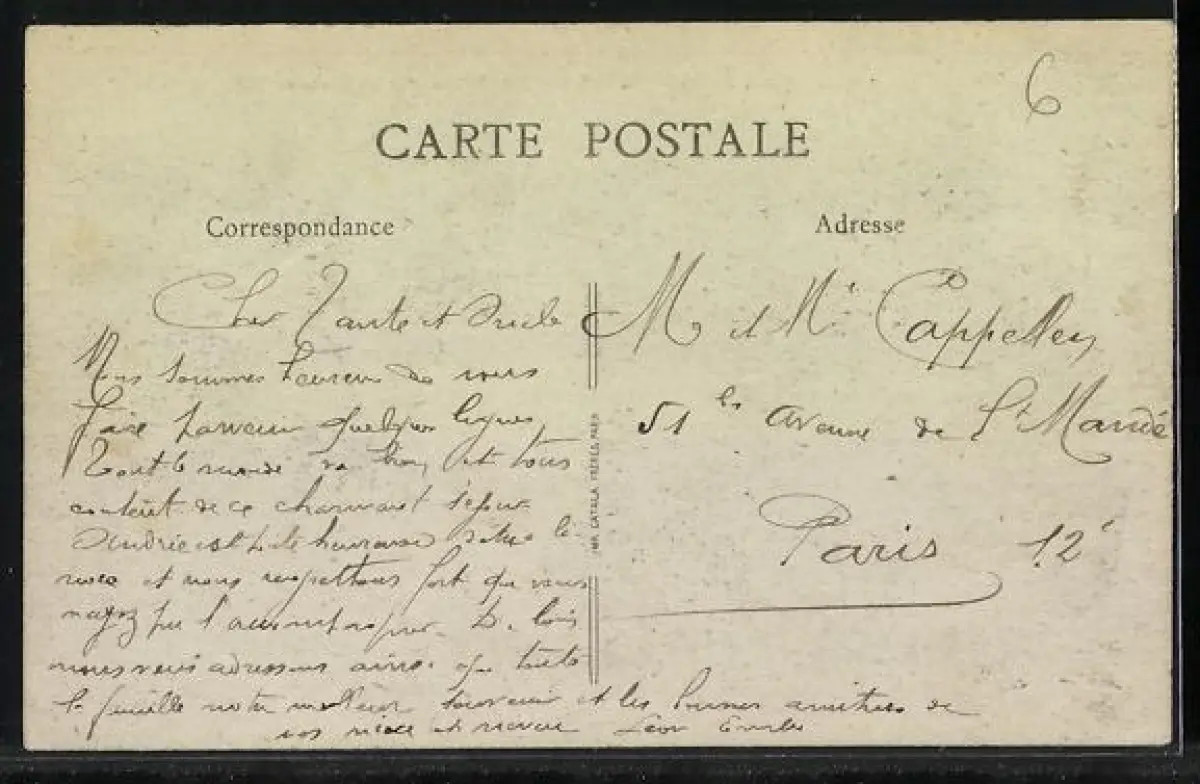 6
CARTE POSTALE
Correspondance
Adresse
Cher Tante et Oncle
Nous sommes heureux de vous
faire parvenir quelques lignes
Tout le monde va bien et tous
content de ce charmant séjour
Andrée est
et nous regrettons fort que vous
n'ayez pu l'accompagner. De loin
nous vous adressons ainsi que toute
la famille notre meilleur souvenir et les bonnes amitiés de
vos nièce et neveu Léon
M et Me Cappelley
51 bis Avenue de St Mandé
Paris 12e
IMP. CATALA FRÈRES, PARIS